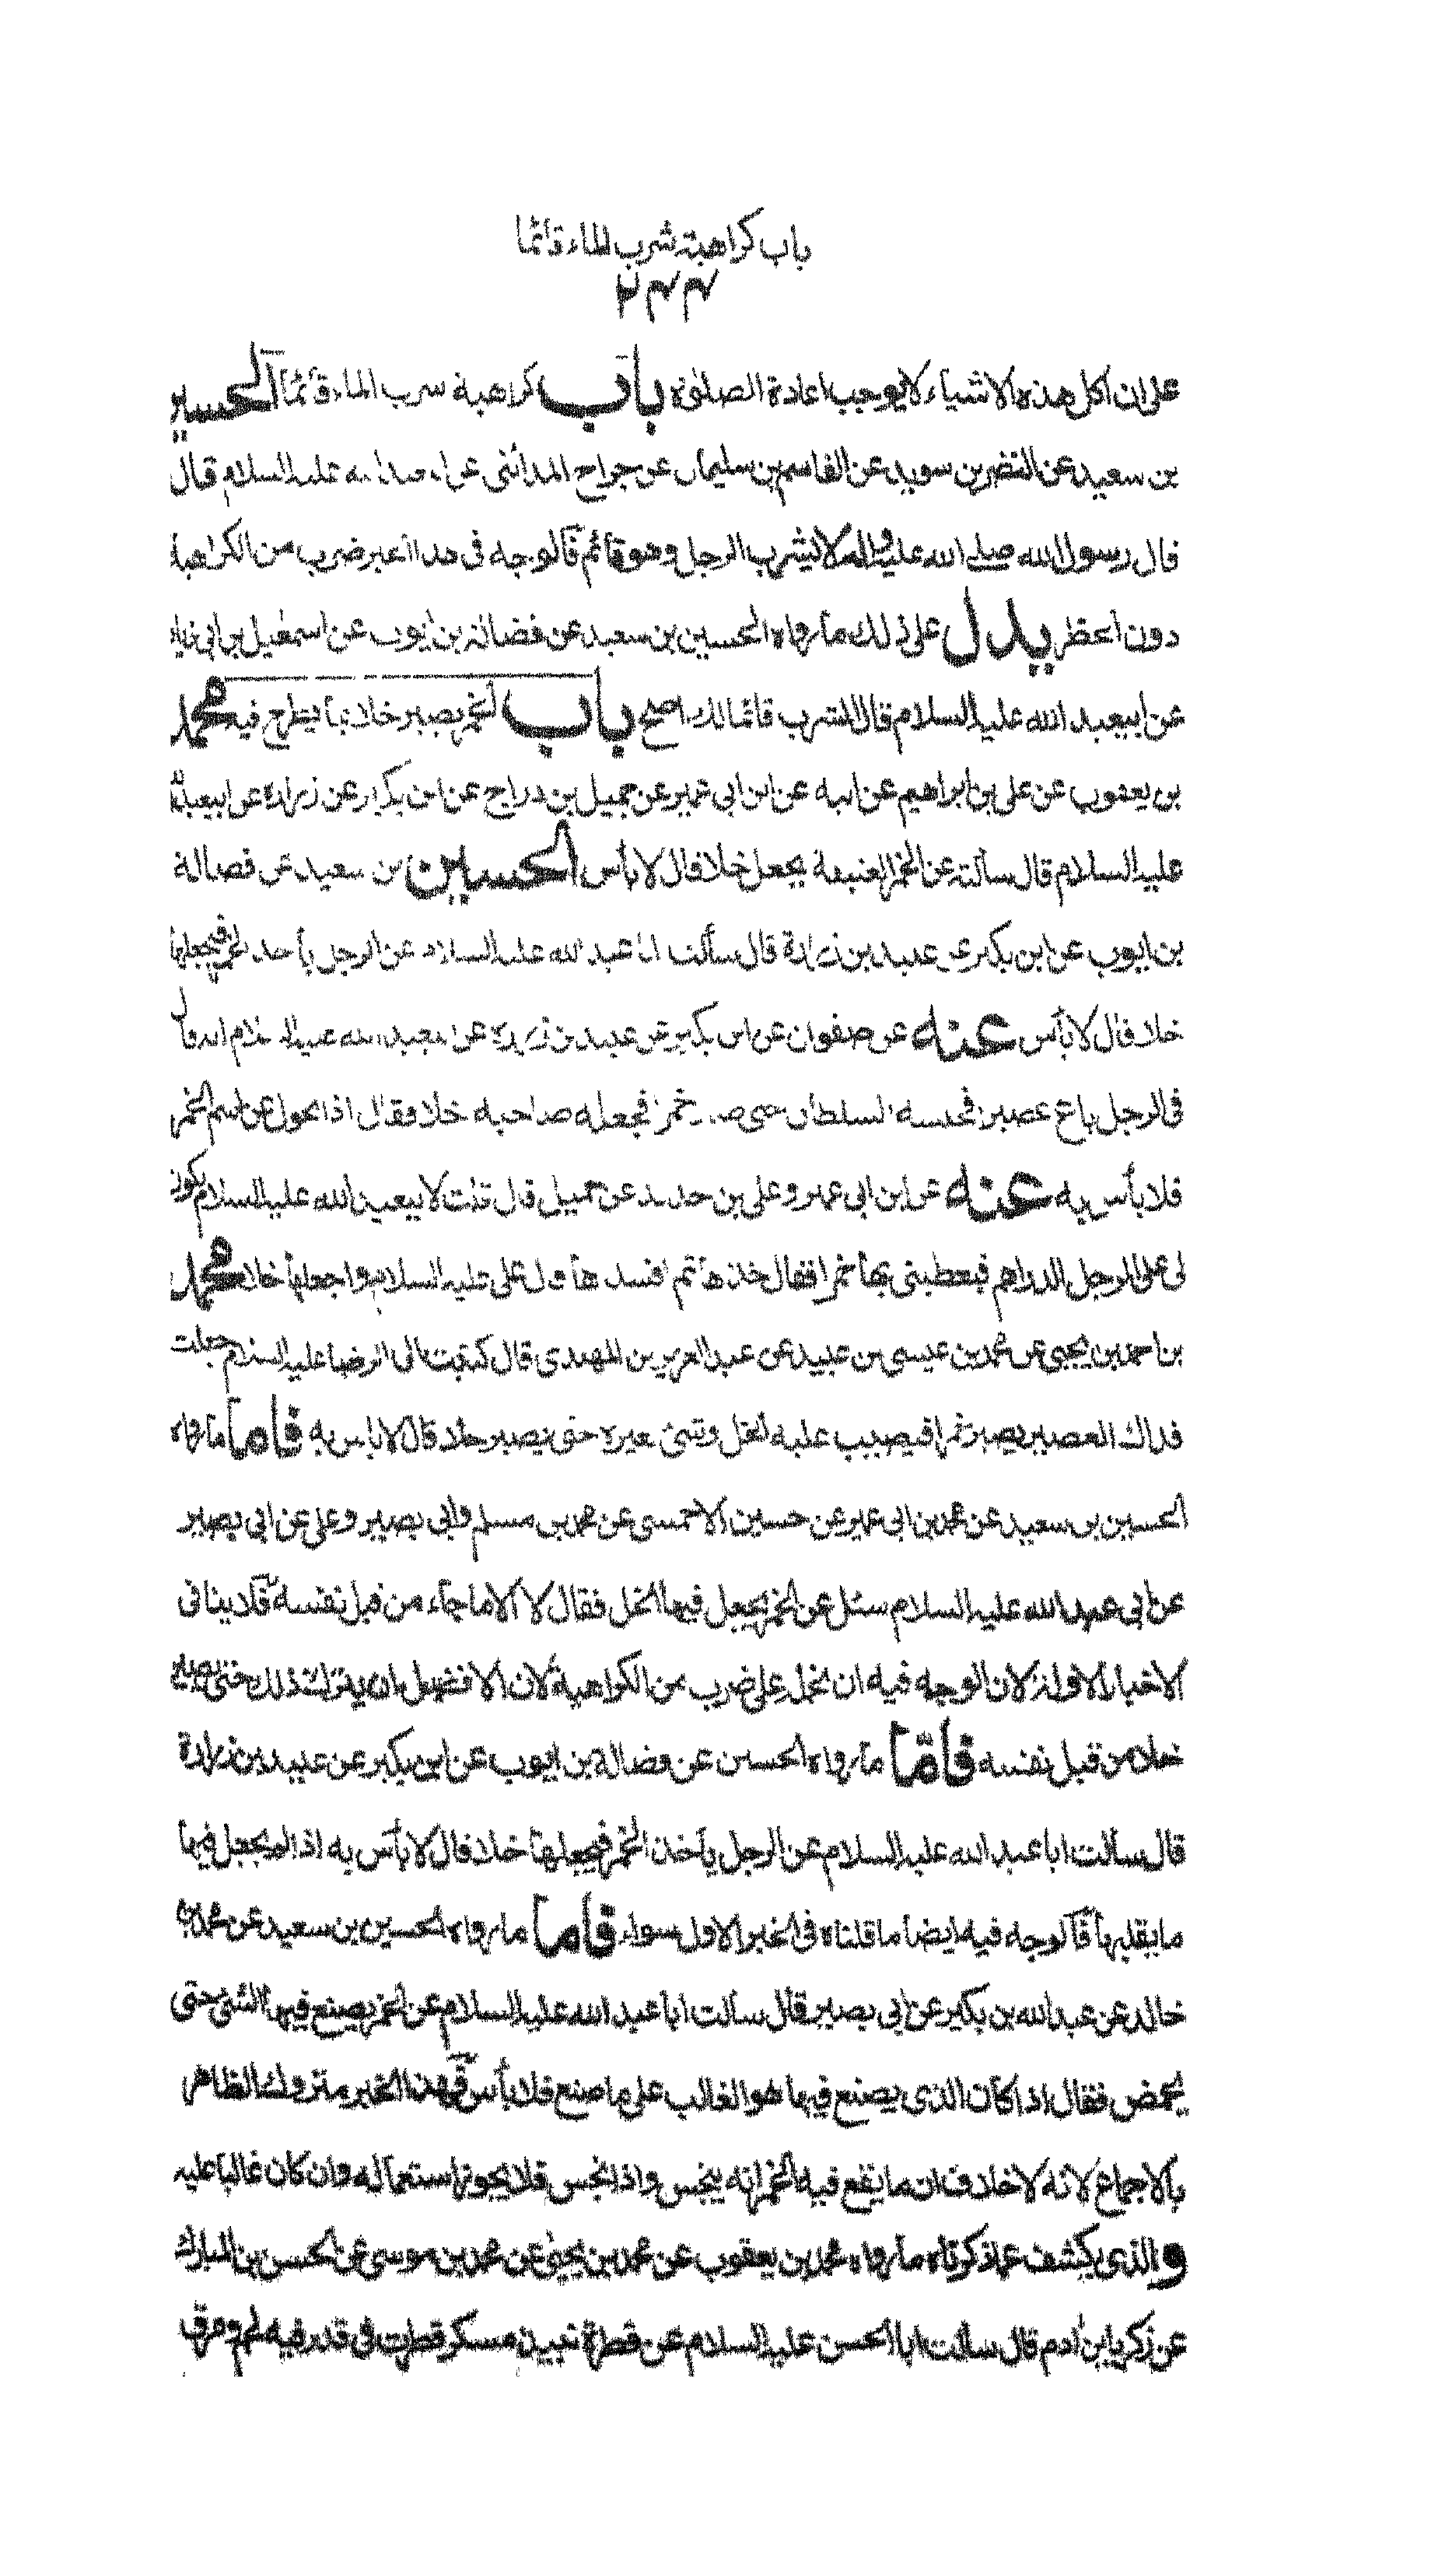 باب كراهية شرب الماء قائما
٣٣٢
على ان اكل هذه الاشياء لا يوجب اعادة الصلوة باب كراهية شرب الماء قائما الحسين
بن سعيد عن النضر بن سويد عن القاسم بن سليمان عن جراح المدائنى عن ابى عبد الله عليه السلام قال
قال رسول الله صلى الله عليه واله لا يشرب الرجل وهو قائم فالوجه فى هذا الخبر ضرب من الكراهية
دون الحظر يدل على ذلك ما رواه الحسين بن سعيد عن فضالة بن ايوب عن اسمعيل بن ابى زياد
عن ابيعبد الله عليه السلام قال الشرب قائما لك اصح باب الخمر يصير خلا بما يطرح فيه محمد
بن يعقوب عن على بن ابراهيم عن ابيه عن ابن ابى عمير عن جميل بن دراج عن ابن بكير عن زرارة عن ابيعبد الله
عليه السلام قال سألته عن الخمر العتيقة يجعل خلا قال لا بأس الحسين بن سعيد عن فضالة
بن ايوب عن ابن بكير عن عبيد بن زرارة قال سألت ابا عبد الله عليه السلام عن الرجل يأخذ الخمر فيجعلها
خلا قال لا بأس عنه عن صفوان عن ابن بكير عن عبيد بن زرارة عن ابيعبد الله عليه السلام انه قال
فى الرجل باع عصيرا فحبسه السلطان حتى صار خمرا فجعله صاحبه خلا وقال اذا تحول عن اسم الخمر
فلا بأس به عنه عن ابن ابى عمير وعلى بن حديد عن جميل قال قلت لابيعبد الله عليه السلام يكون
لى على الرجل الدراهم فيعطينى بها خمرا فقال خذها ثم افسدها قال على عليه السلام واجعلها خلا محمد
بن احمد بن يحيى عن محمد بن عيسى بن عبيد عن عبد العزيز بن المهتدى قال كتبت الى الرضا عليه السلام جعلت
فداك العصير يصير خمرا فيصب عليه الخل وشئ يغيره حتى يصير خلا قال لا باس به فاما ما رواه
الحسين بن سعيد عن محمد بن ابى عمير عن حسين الاحمسى عن محمد بن مسلم وابى بصير وعلى عن ابى بصير
عن ابى عبد الله عليه السلام سئل عن الخمر يجعل فيها الخل فقال لا الا ما جاء من قبل نفسه فلا ينافى
الاخبار الاولة لان الوجه فيه ان نحمل على ضرب من الكراهية لان الافضل ان يترك ذلك حتى يصير
خلا من قبل نفسه فاما ما رواه الحسين عن فضالة بن ايوب عن ابن بكير عن عبيد بن زرارة
قال سألت ابا عبد الله عليه السلام عن الرجل يأخذ الخمر فيجعلها خلا قال لا بأس به اذا لم يجعل فيها
ما يقلبها فالوجه فيه ايضا ما قلناه فى الخبر الاول سواء فاما ما رواه الحسين بن سعيد عن محمد بن
خالد عن عبد الله بن بكير عن ابى بصير قال سألت ابا عبد الله عليه السلام عن الخمر يصنع فيها الشئ حتى
يحمض فقال اذا كان الذى يصنع فيها هو الغالب على ما صنع فلا بأس فهذا الخبر متروك الظاهر
بالاجماع لانه لا خلاف ان ما يقع فيه الخمر انه ينجس واذا نجس فلا يجوز استعماله وان كان غالبا عليه
والذى يكشف عما ذكرناه ما رواه محمد بن يعقوب عن محمد بن يحيى عن محمد بن موسى عن الحسن بن المبارك
عن زكريا بن ادم قال سألت ابا الحسن عليه السلام عن قطرة نبيذ مسكر قطرت فى قدر فيه لحم ومرق